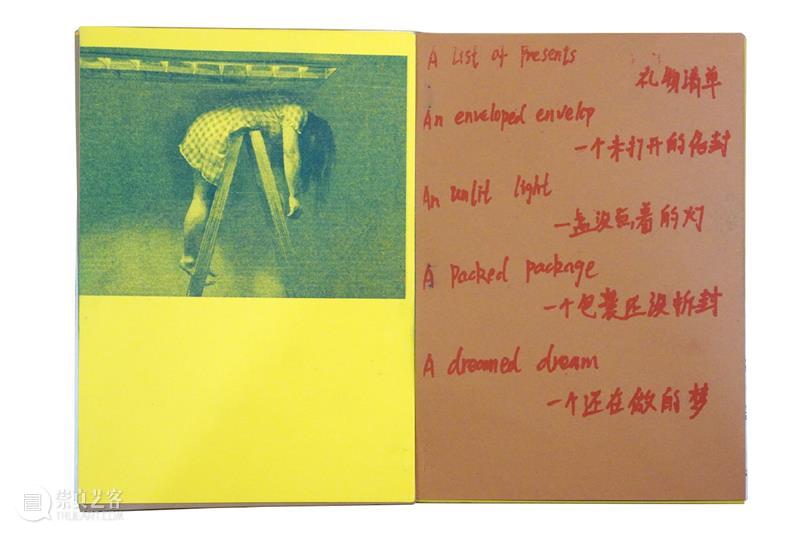 A List of Presents
礼物清单
An enveloped envelop
一个未打开的信封
An unlit light
一盏没点着的灯
A packed package
一个包裹还没拆封
A dreamed dream
一个还在做的梦
崇真艺客
TRUEART.COM